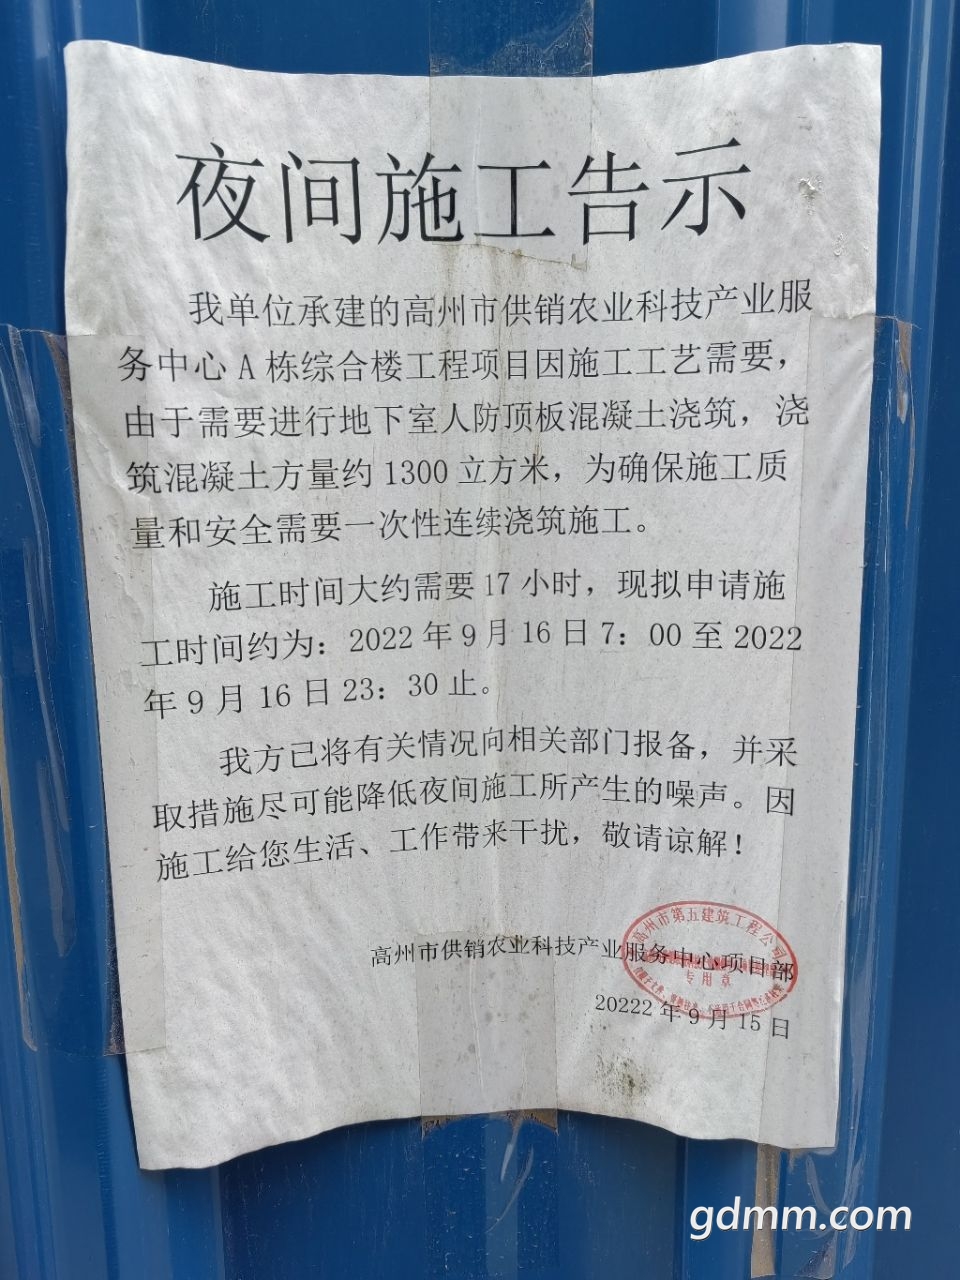 夜间施工告示
我单位承建的高州市供销农业科技产业服
务中心 A 栋综合楼工程项目因施工工艺需要，
由于需要进行地下室人防顶板混凝土浇筑，浇
筑混凝土方量约 1300 立方米，为确保施工质
量和安全需要一次性连续浇筑施工。
施工时间大约需要 17 小时，现拟申请施
工时间约为：2022 年 9 月 16 日 7：00 至 2022
年 9 月 16 日 23：30 止。
我方已将有关情况向相关部门报备，并采
取措施尽可能降低夜间施工所产生的噪声。因
施工给您生活、工作带来干扰，敬请谅解！
高州市供销农业科技产业服务中心项目部
20222 年 9 月 15 日
高州市第五建筑工程公司
专用章
gdmm.com